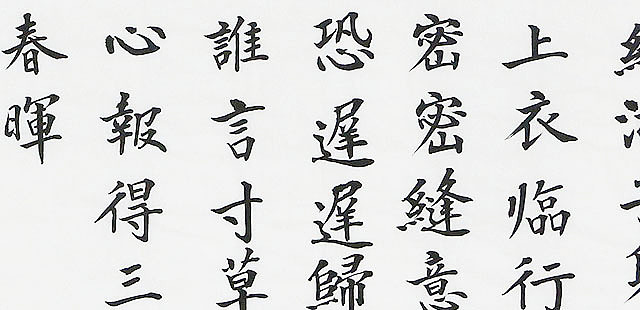 上衣臨行
密密縫意
恐遲遲歸
誰言寸草
心報得三
春暉